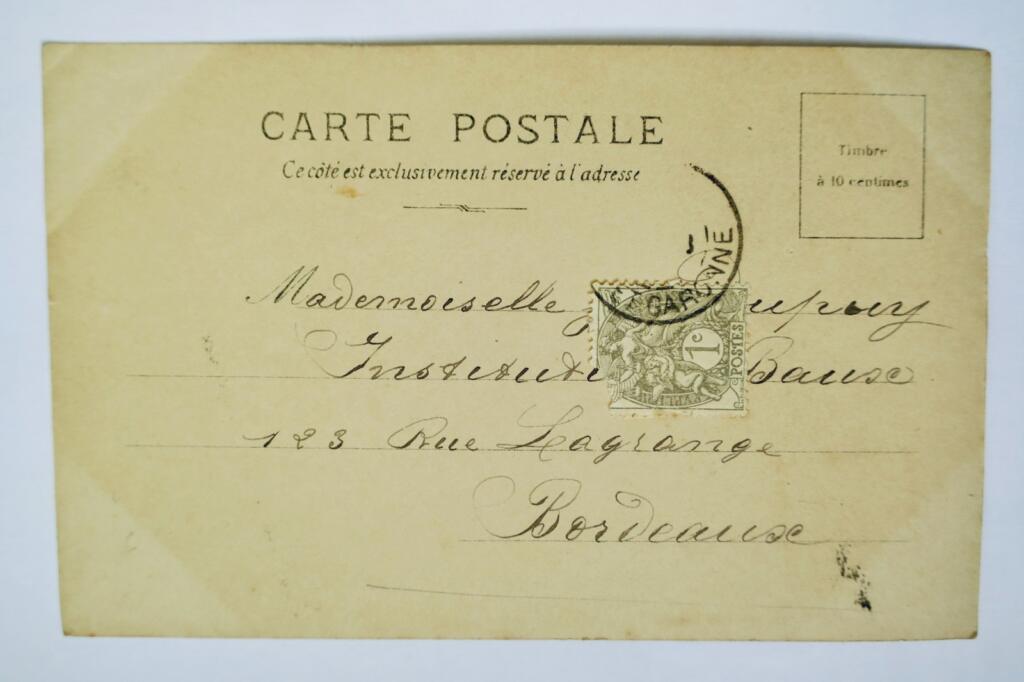 CARTE POSTALE
Ce côté est exclusivement réservé à l'adresse
Timbre
à 10 centimes
GARONNE
1c
POSTES
Mademoiselle
Institut Baux
123 Rue Lagrange
Bordeaux